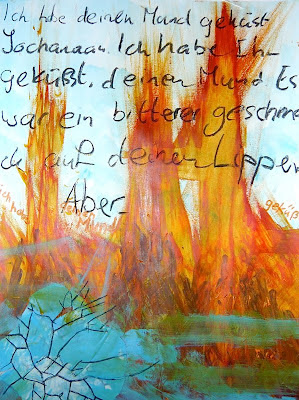 Ich habe deinen Mund geküst
Jochanaan. Ich habe Ihn
geküßt, deinen Mund Es
war ein bitterer geschme
ck auf deinen Lippen
Aber
geküß